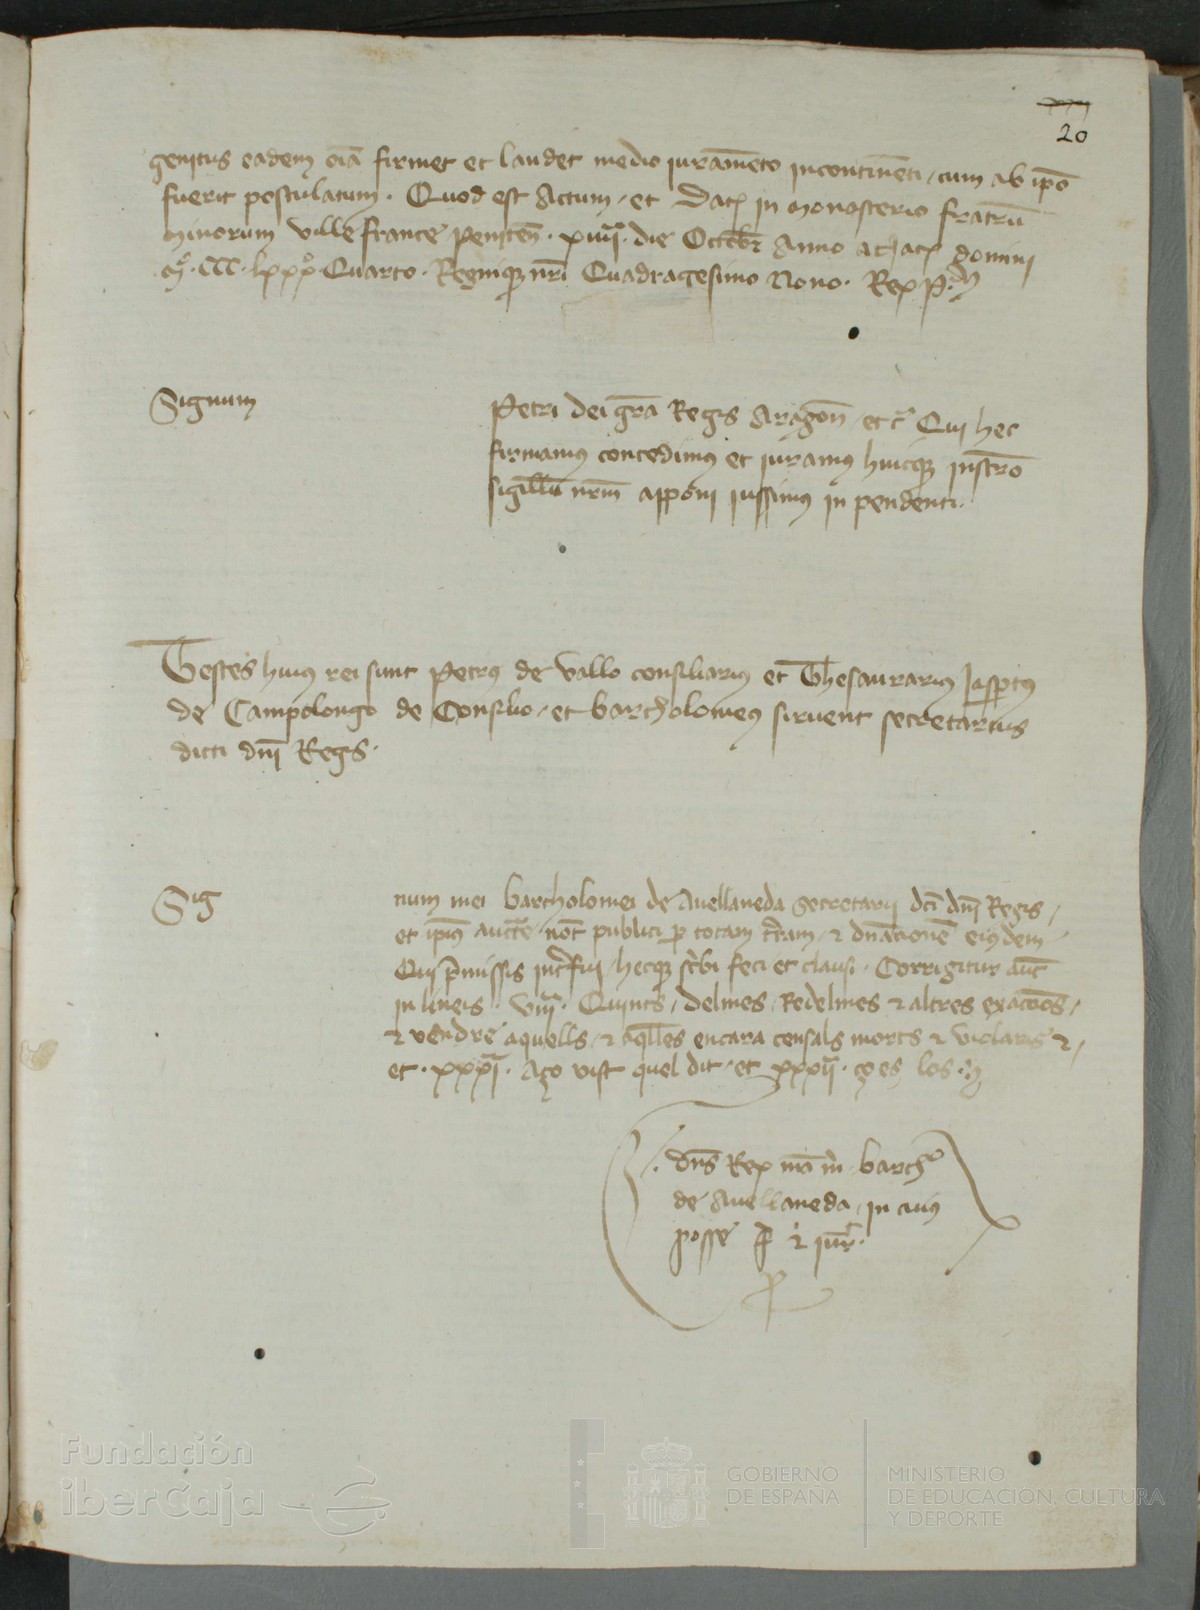 20
genitus eadem oīa firmet et laudet medio iuramēto incontinēti, cum ab ipō
fuerit postulatum. Quod est Actum, et Datū in monasterio fratrū
Minorum Ville france Peniten̄. xiiij. die Octobr̄ Anno a natū domini
Mº. CCC. lxxxº. Quarto. Regniqꝫ nr̄i Quadragesimo Nono. Rex P.
Signum
Petri dei gr̄a Regis Aragon̄, etc̄ Qui hec
firmamus concedimus et iuramus huicqꝫ instr̄o
sigillū nr̄m apponi iussimus in pendenti.
Testes huius rei sunt Petrus de Vallo consiliarius et Thesaurarius Jaspertus
de Campolongo de Consilio, et bartholomeus siruent secretarius
dicti dn̄i Regis.
Sig
num mei bartholomei de Auellaneda Secretarij dc̄i dn̄i Regis,
et ipius auctē not̄ publici p totam tr̄ram, ⁊ dn̄acionē eiusdem
Qui p̄missis int̄rfui, hecqꝫ sc̄bi feci et clausi. Corrigitur aut̄
in lineis. viij. Quints, delmes, Redelmes ⁊ altres exaccōs,
⁊ vendre aquells, ⁊ aq̄lles encara censals morts ⁊ violaris ⁊,
et. xxxj. Aço vist quel dit, et xxxij. ço es los.
dn̄s Rex mā m̄ barthº
de Auellaneda, in cuius
posse f̄ ⁊ iur̄.
Fundación
iberCaja
GOBIERNO
DE ESPAÑA
MINISTERIO
DE EDUCACIÓN, CULTURA
Y DEPORTE